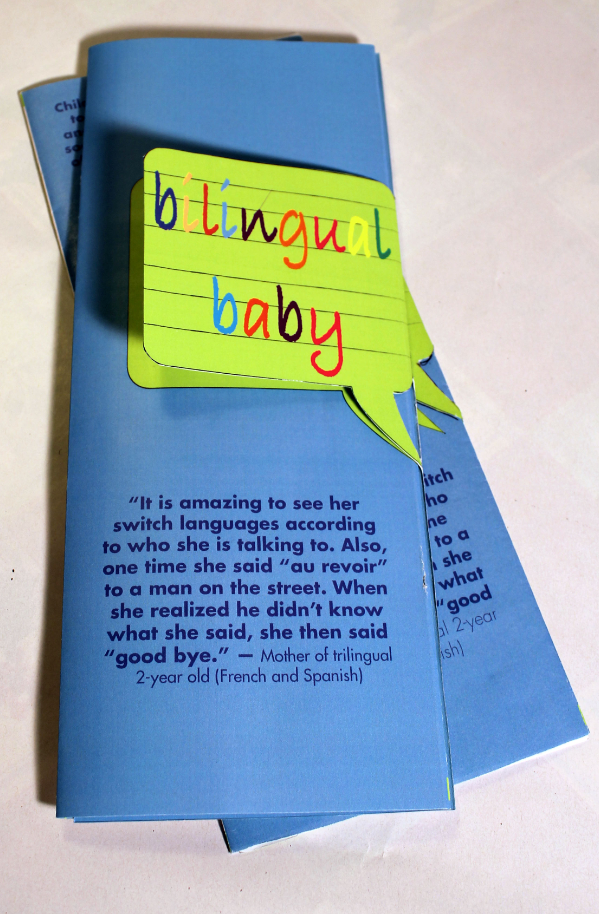 bilingual
baby
“It is amazing to see her
switch languages according
to who she is talking to. Also,
one time she said “au revoir”
to a man on the street. When
she realized he didn’t know
what she said, she then said
“good bye.” — Mother of trilingual
2-year old (French and Spanish)
to a
she
what
“good
2-year